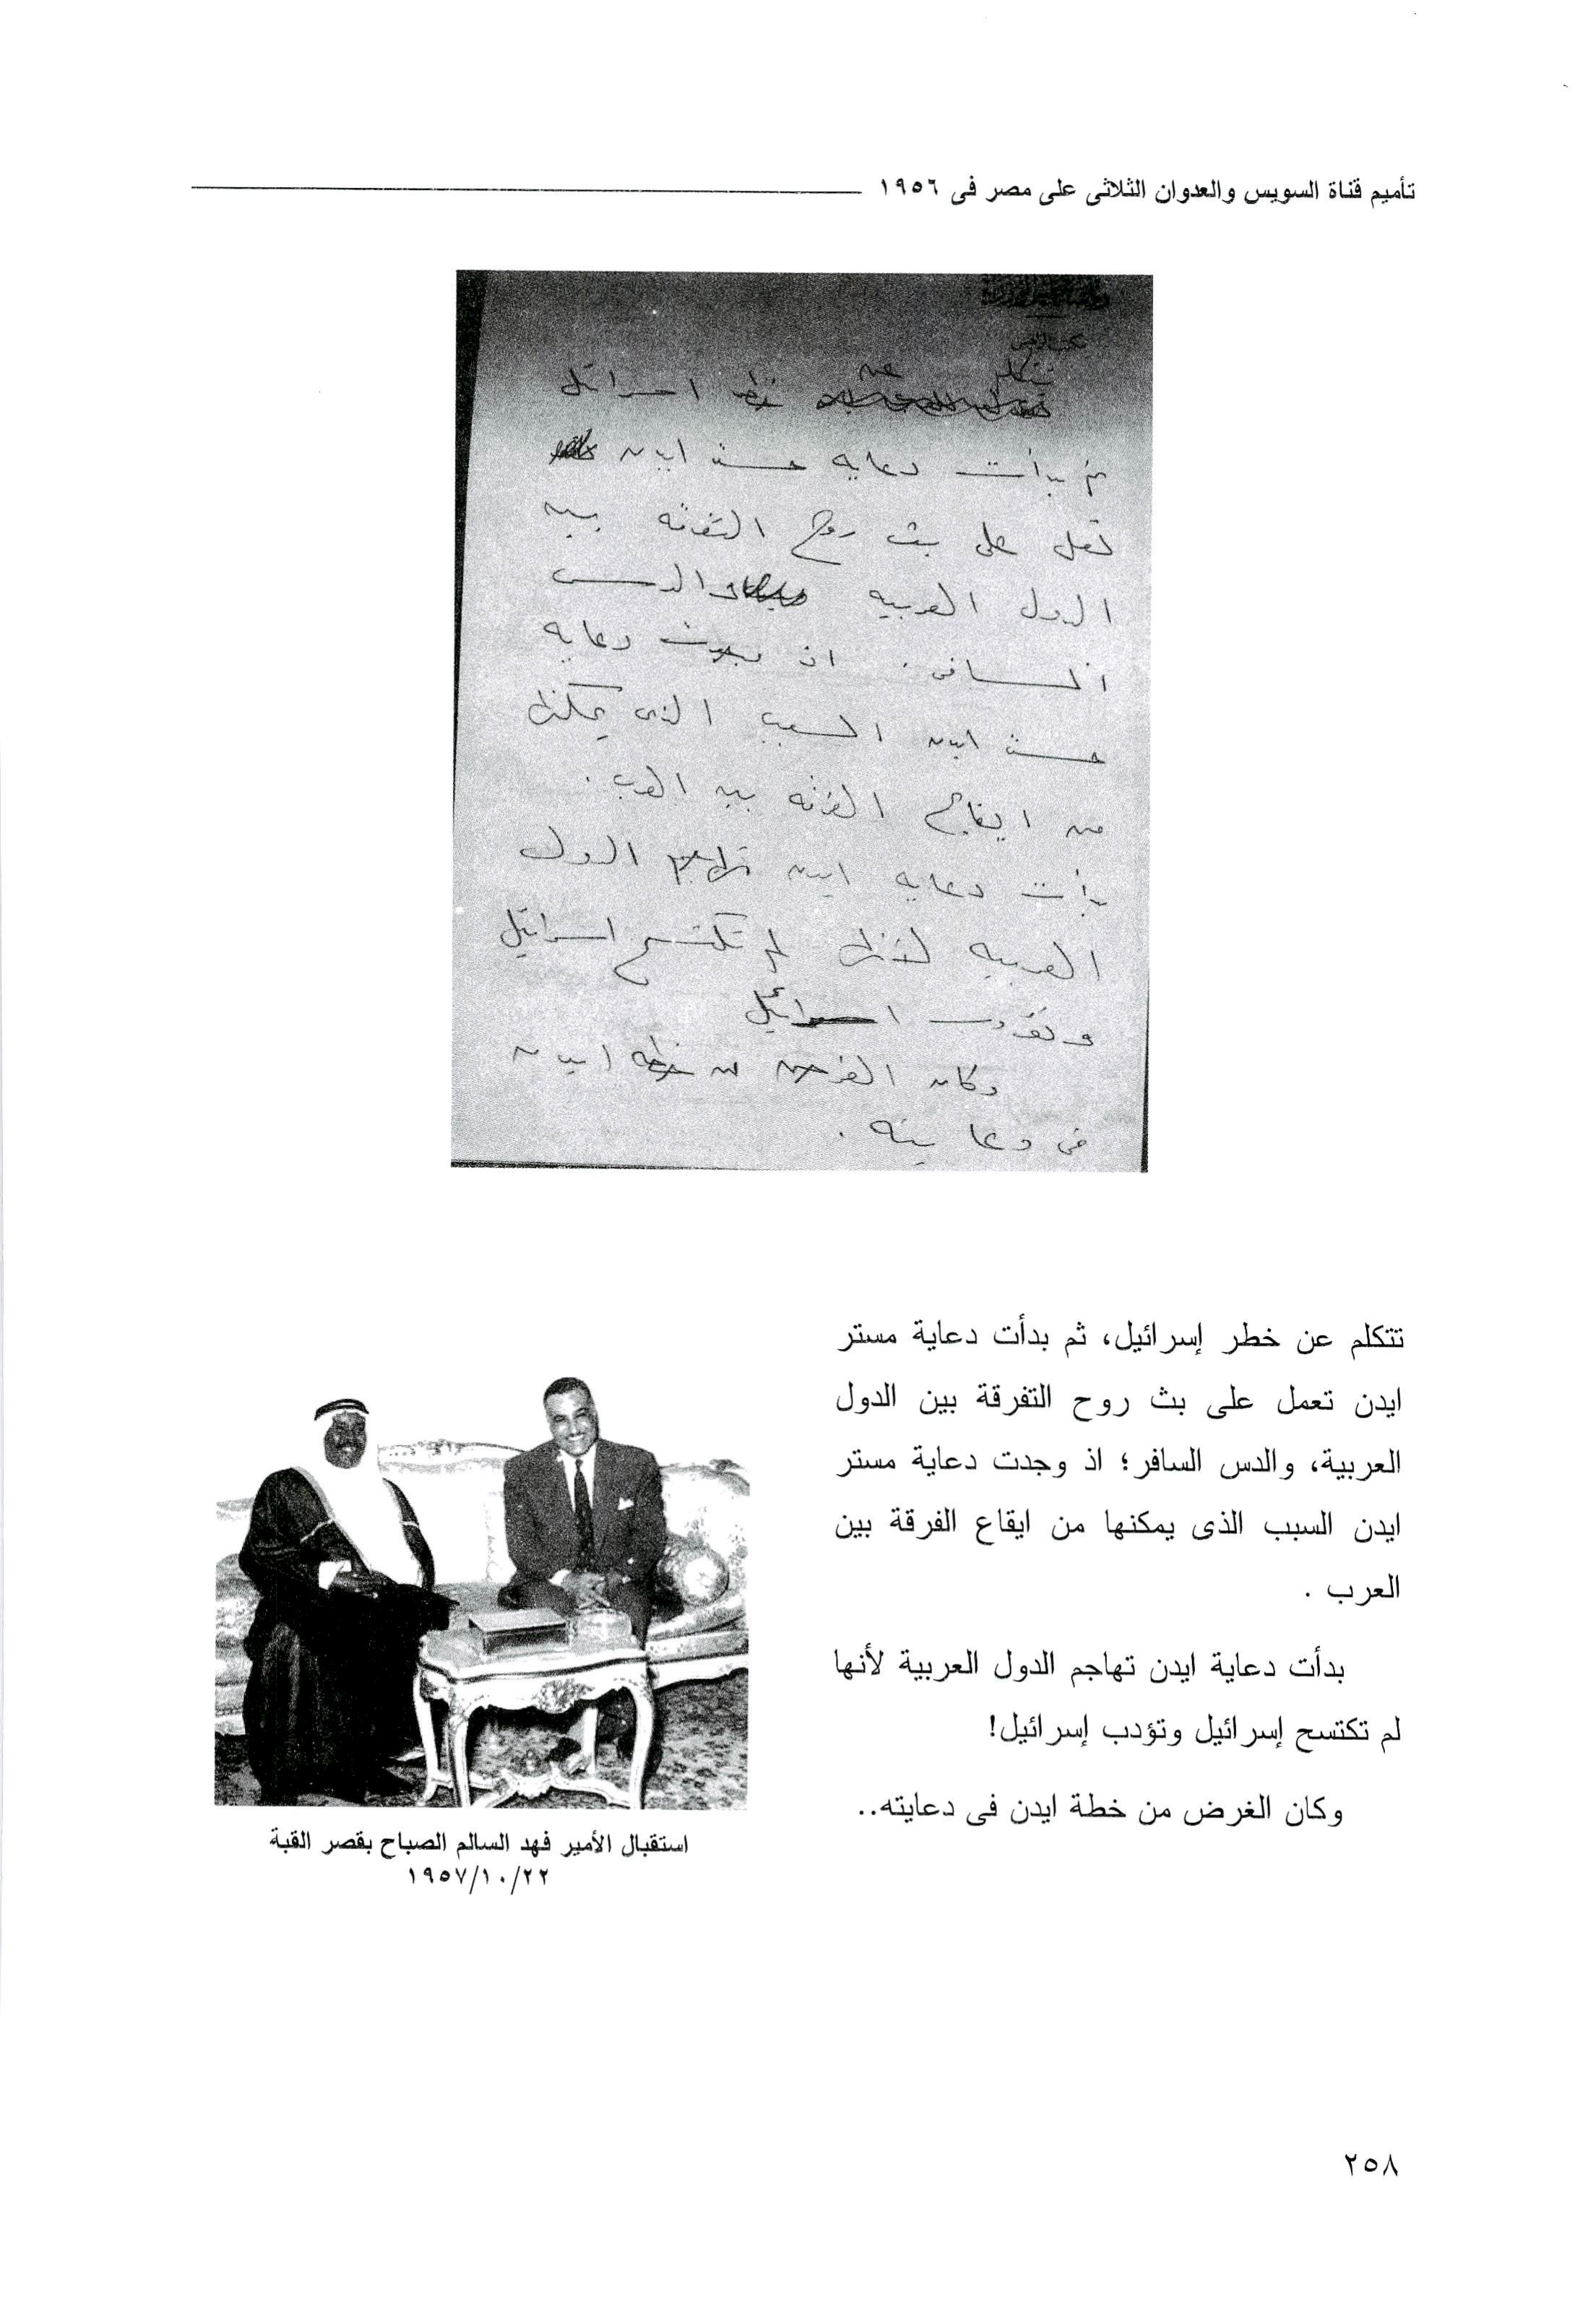 تأميم قناة السويس والعدوان الثلاثى على مصر فى ١٩٥٦
تتكلم عن خطر اسرائيل
ثم بدأت دعايه مستر ايدن
تعمل على بث روح التفرقه بين
الدول العربيه والدس
السافر . اذ وجدت دعايه
مستر ايدن السبب الذى يمكنها
من ايقاع الفرقه بين العرب .
بدأت دعايه ايدن تهاجم الدول
العربيه لأنها لم تكتسح اسرائيل
وتؤدب اسرائيل
وكان الغرض من خطه ايدن
فى دعايته .
تتكلم عن خطر إسرائيل، ثم بدأت دعاية مستر
ايدن تعمل على بث روح التفرقة بين الدول
العربية، والدس السافر؛ اذ وجدت دعاية مستر
ايدن السبب الذى يمكنها من ايقاع الفرقة بين
العرب .
بدأت دعاية ايدن تهاجم الدول العربية لأنها
لم تكتسح إسرائيل وتؤدب إسرائيل!
وكان الغرض من خطة ايدن فى دعايته..
استقبال الأمير فهد السالم الصباح بقصر القبة
١٩٥٧/١٠/٢٢
٢٥٨